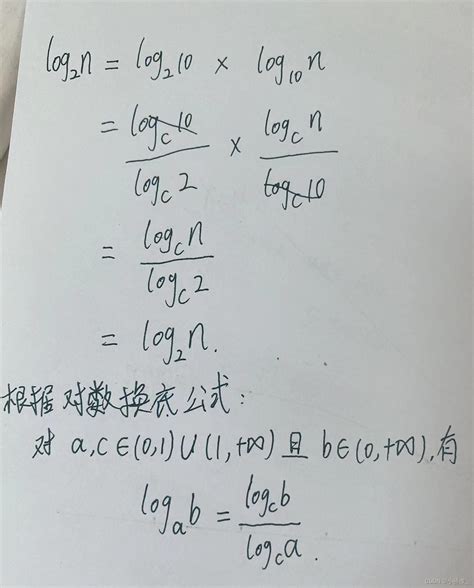 log₂n = log₂10 × log₁₀n
= log_c 10 / log_c 2 × log_c n / log_c 10
= log_c n / log_c 2
= log₂n.
根据对数换底公式:
对 a,c∈(0,1)∪(1,+∞) 且 b∈(0,+∞),有
log_a b = log_c b / log_c a.